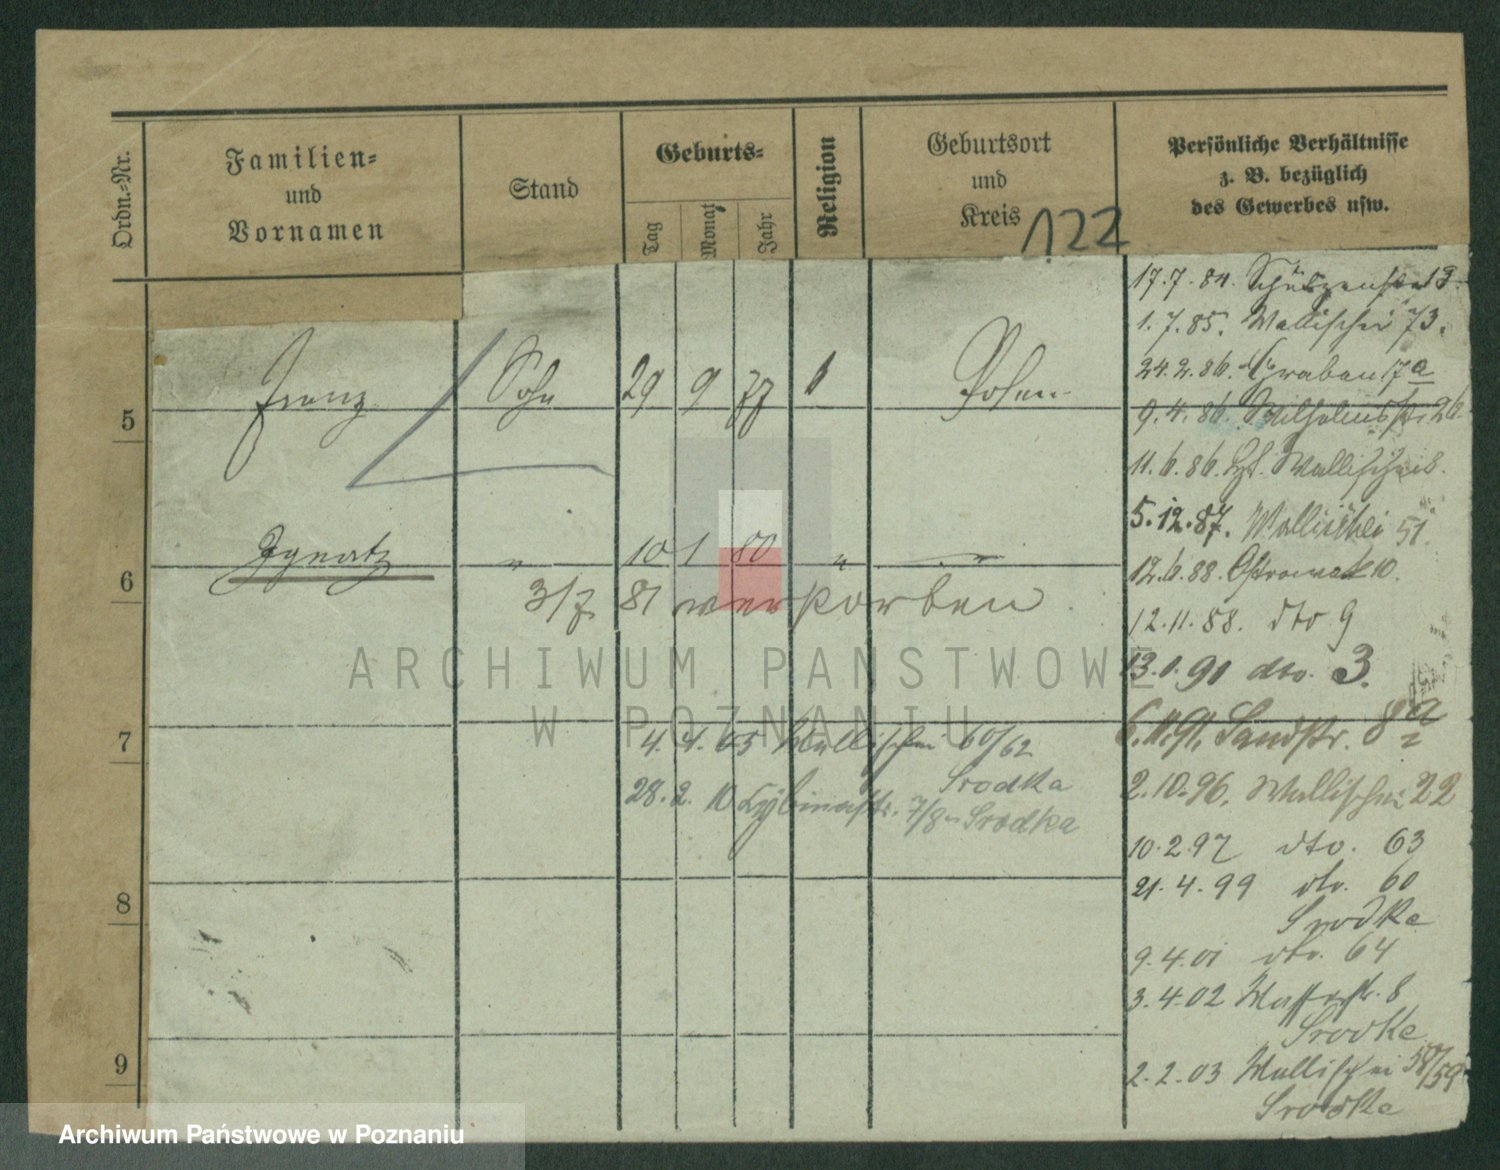 Ordn.-Nr.
Familien-
und
Vornamen
Stand
Geburts-
Tag
Monat
Jahr
Religion
Geburtsort
und
Kreis
122
Persönliche Verhältnisse
z. B. bezüglich
des Gewerbes usw.
17.7.84. Schützenstr 19.
1.7.85. Wallischei 73.
24.2.86. Graben 17a
9.4.86. Wilhelmsstr 26
11.6.86. Wallischei 8.
5.12.87. Wallischei 51.
12.6.88. Ostrowek 10.
12.11.88. dto 9
13.1.90 dto. 3.
6.11.91. Sandstr. 8a
2.10.96. Wallischei 22
10.2.97 dto. 63
21.4.99 dto. 60
Srodka
9.4.01 dto. 64
3.4.02 8
Srodka
2.2.03 Wallischei 58/59
Srodka
5 Franz Sohn 29 9 77 Posen
6 Ignatz " 10 1 80 " "
3/7 81 verstorben
7
4.4.05 Wallischei 60/62
Srodka
28.2.10 Cybinastr. 7/8 Srodka
8
9
ARCHIWUM PAŃSTWOWE
W POZNANIU
Archiwum Państwowe w Poznaniu